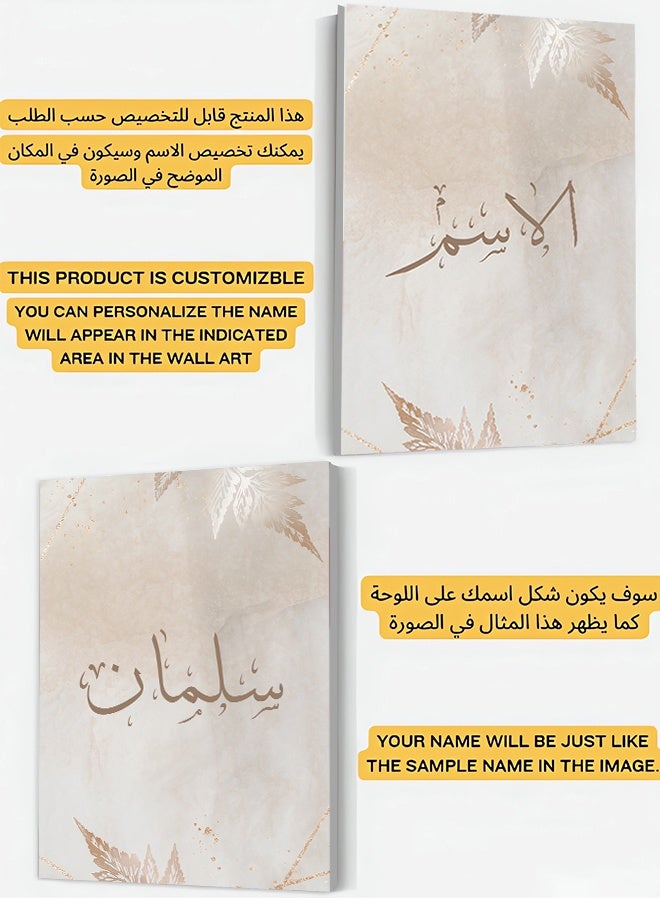 هذا المنتج قابل للتخصيص حسب الطلب
يمكنك تخصيص الاسم وسيكون في المكان
الموضح في الصورة
THIS PRODUCT IS CUSTOMIZBLE
YOU CAN PERSONALIZE THE NAME
WILL APPEAR IN THE INDICATED
AREA IN THE WALL ART
الاسم
سلمان
سوف يكون شكل اسمك على اللوحة
كما يظهر هذا المثال في الصورة
YOUR NAME WILL BE JUST LIKE
THE SAMPLE NAME IN THE IMAGE.